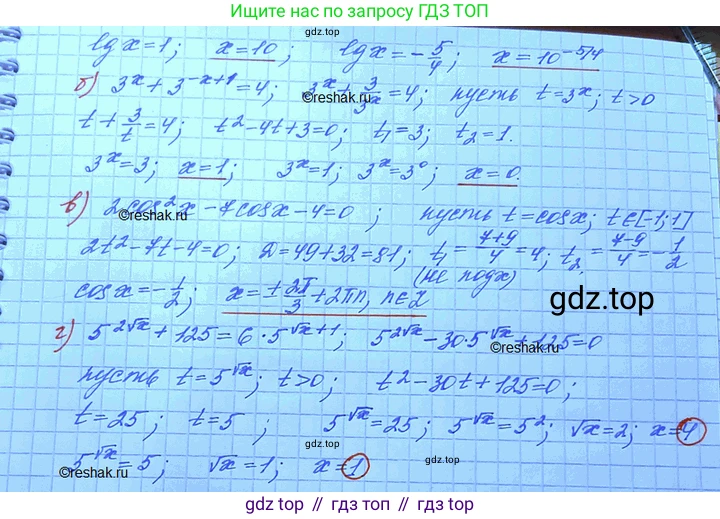 Ищите нас по запросу ГДЗ ТОП
lg x = 1; x = 10; lg x = -5/4; x = 10^(-5/4)
gdz.top
б) 3^x + 3^(-x+1) = 4; 3^x + 3/3^x = 4; пусть t = 3^x; t > 0
©reshak.ru
t + 3/t = 4; t² - 4t + 3 = 0; t₁ = 3; t₂ = 1.
3^x = 3; x = 1; 3^x = 1; 3^x = 3⁰; x = 0.
в) 2cos²x - 7cosx - 4 = 0; пусть t = cosx; t ∈ [-1; 1]
©reshak.ru
2t² - 7t - 4 = 0; D = 49 + 32 = 81; t₁ = (7+9)/4 = 4; t₂ = (7-9)/4 = -1/2
(не подх)
cosx = -1/2; x = ±2π/3 + 2πn, n∈Z
gdz.top
г) 5^(2√x) + 125 = 6·5^(√x+1); 5^(2√x) - 30·5^(√x) + 125 = 0
©reshak.ru
пусть t = 5^(√x); t > 0; t² - 30t + 125 = 0;
t = 25; t = 5; 5^(√x) = 25; 5^(√x) = 5²; √x = 2; x = 4
gdz.top
5^(√x) = 5; √x = 1; x = 1
©reshak.ru
gdz.top
gdz.top // гдз топ // gdz.top